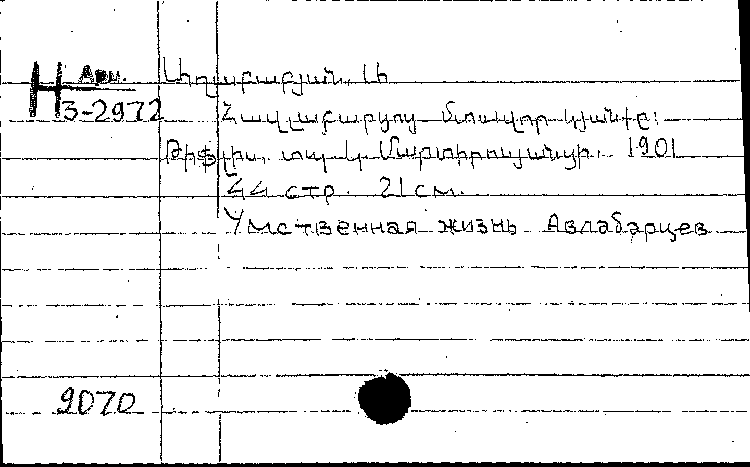 Арм.
Н
3-2972
Աղաբաբյան, Ա
Հավլաբարցոց մտավոր կյանքը:
Թիֆլիս, տպ. Կ. Մարտիրոսյանցի. 1901
44 стр. 21 см.
Умственная жизнь Авлабарцев
9070